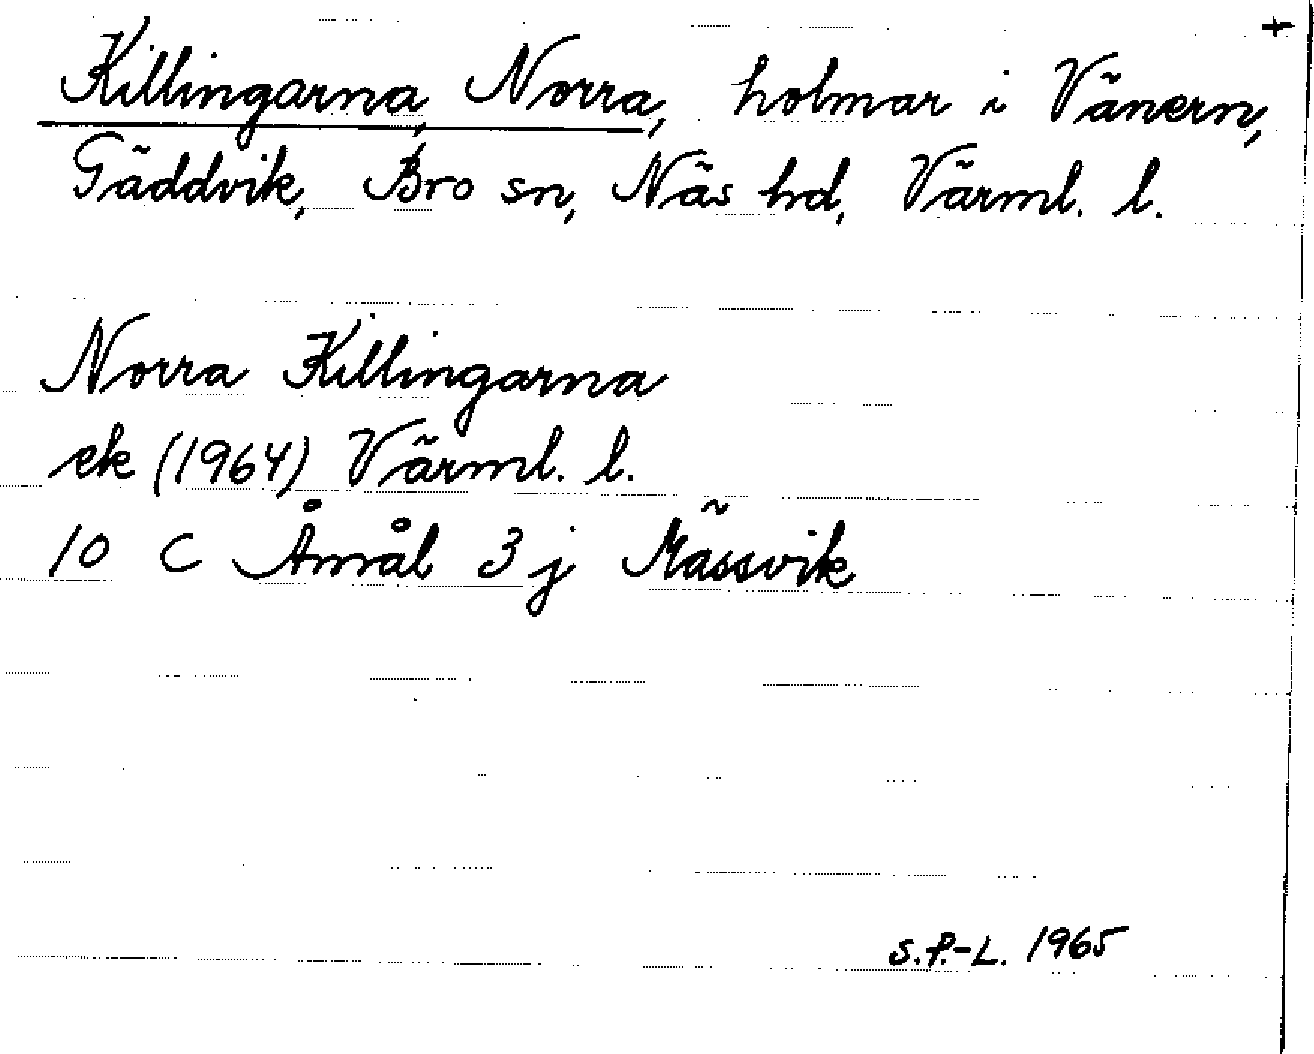 +
Killingarna, Norra, holmar i Vänern,
Gäddvik, Bro sn, Näs hd, Värml. l.
Norra Killingarna
ek (1964) Värml. l.
10 C Åmål 3 j Mässvik
S.P.-L. 1965